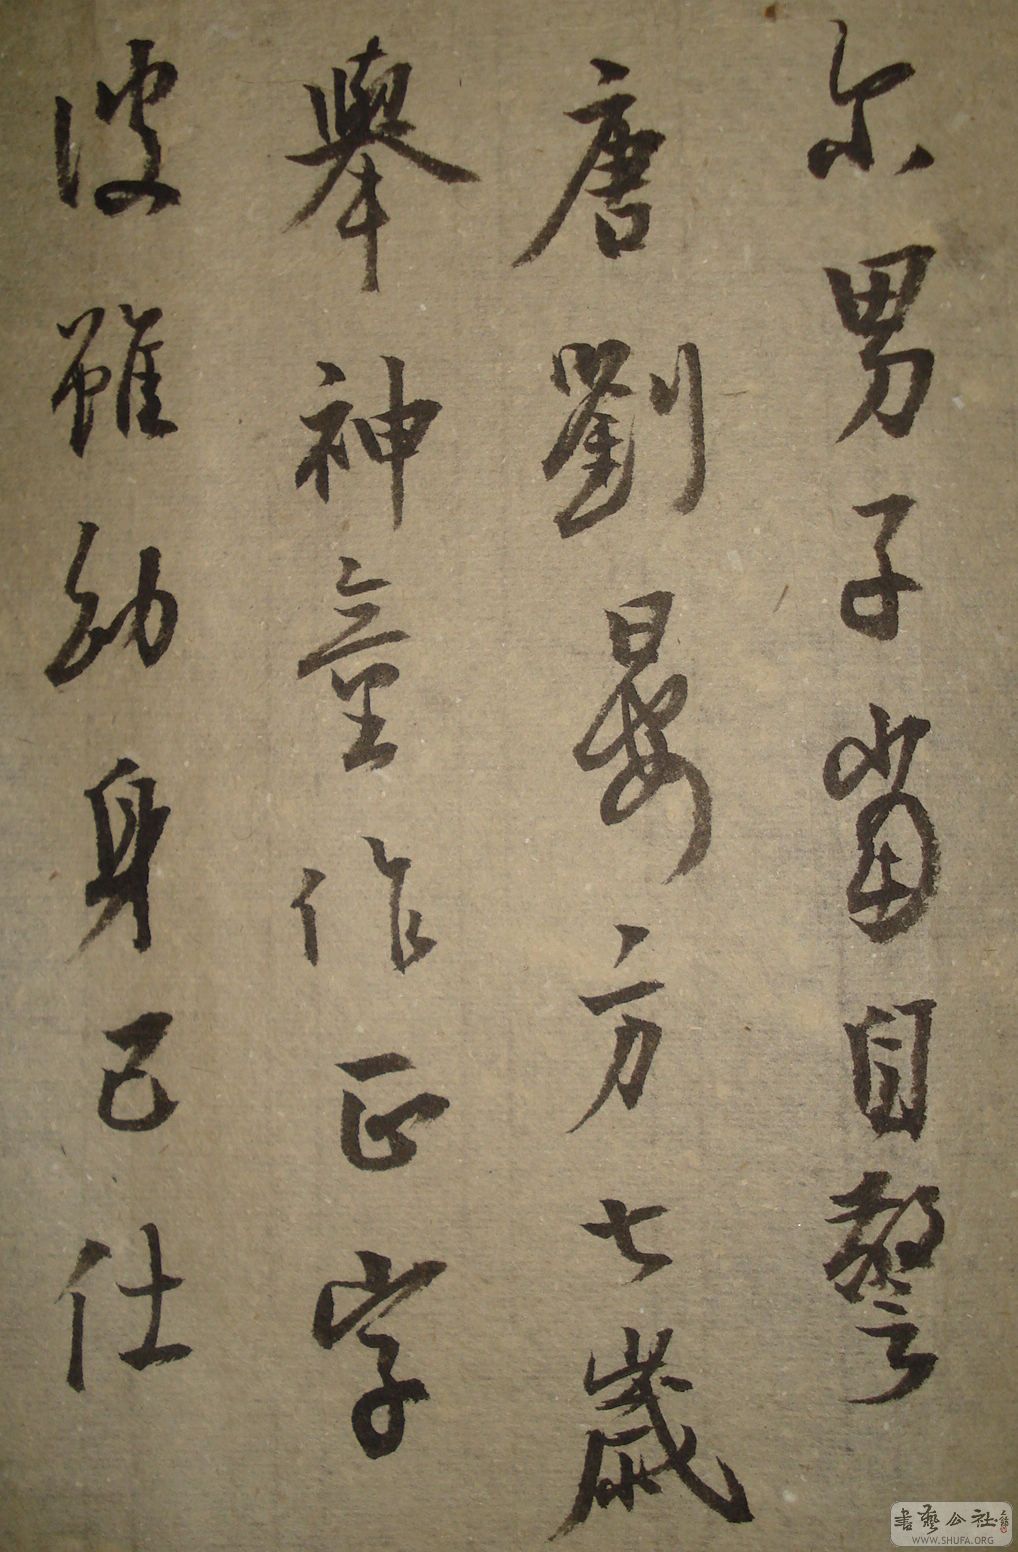 尔男子當自警
唐劉晏方七歲
舉神童作正字
彼雖幼身已仕
書藝公社
WWW.SHUFA.ORG